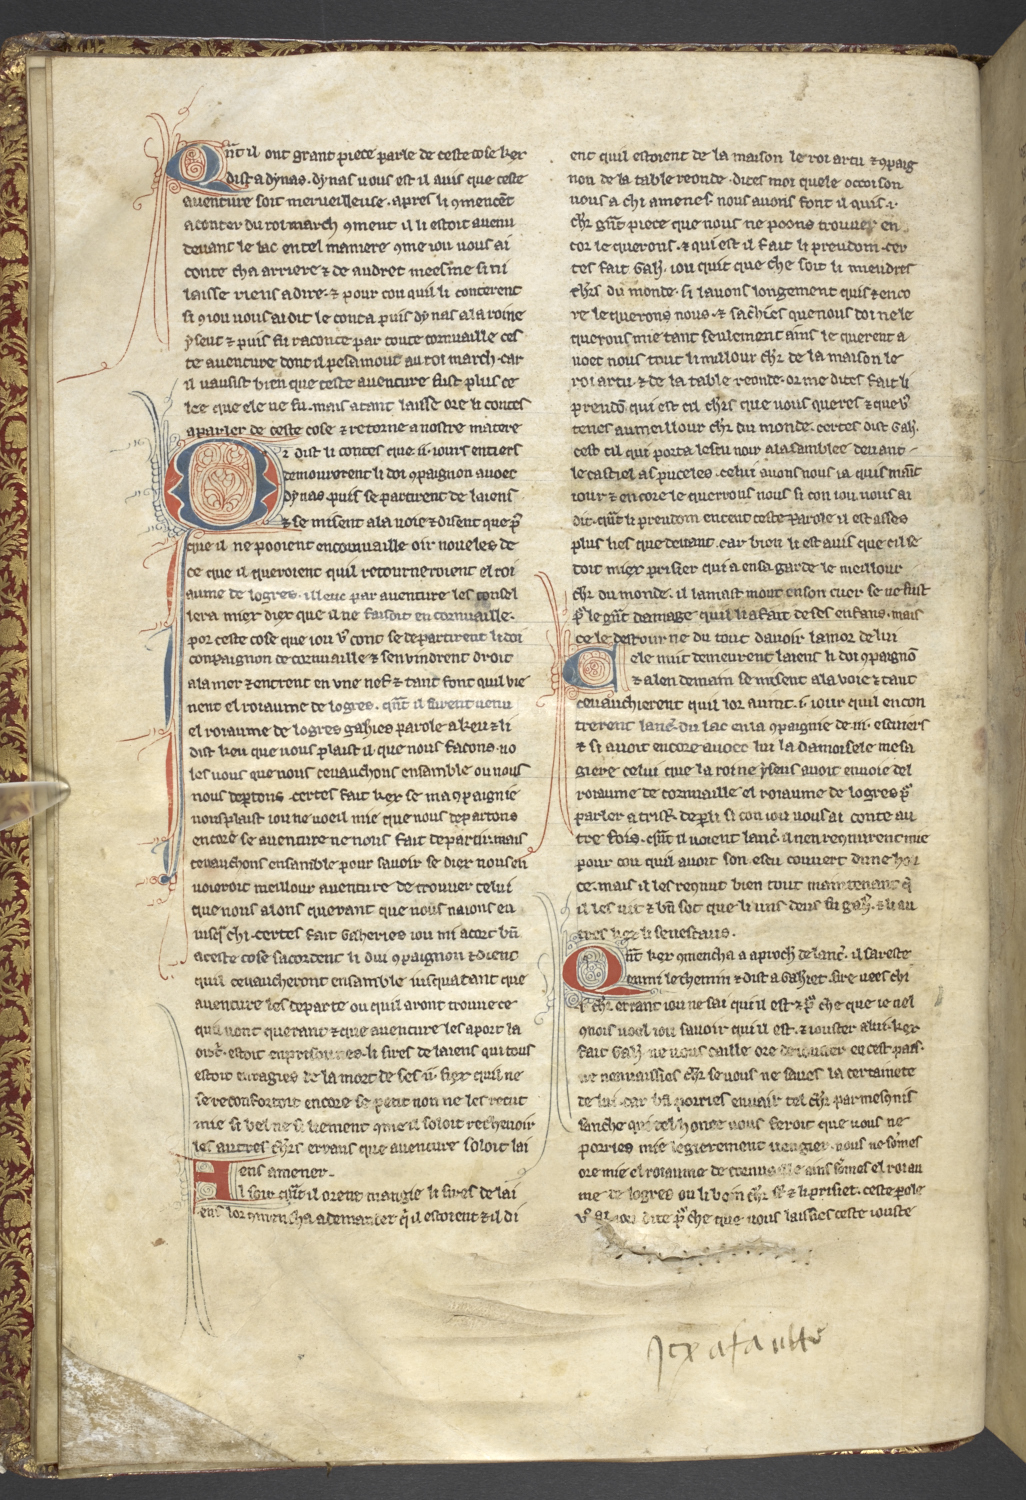 Qñt il ont grant piece parle de ceste cose ker
dist a dynas. dynas uous est il auis que ceste
auenture soit merueilleuse. apres li ꝯmencēt
a conter du roi march ꝯment il li estoit auenu
deuant le lac en tel maniere ꝯme iou uous ai
conte cha arriere ⁊ de audret meesme si ni
laisse riens a dire. ⁊ pour cou quil li conterent
si ꝯ iou uous ai dit le conta puis dynas a la roine
yseut ⁊ puis fu raconte par toute cornuaille ces
te auenture dont il pesa mout au roi march. car
il uausist bien que ceste auenture fust plus ce
lee que ele ne fu. mais atant laisse ore li contes
a parler de ceste cose ⁊ retorne a nostre matere
Or dist li contes que .ii. iours entiers
demourerent li doi ꝯpaignon auoec
dynas. puis se partirent de laiens
⁊ se misent a la uoie ⁊ disent que p̄
que il ne pooient en cornuaille oir noueles de
ce que il queroient quil retourneroient el roi
aume de logres. illuec par auenture les consel
lera miex diex que il ne faisoit en cornuaille.
por ceste cose que iou v̄ cont se departirent li doi
conpaignon de cornuaille ⁊ sen uindrent droit
a la mer ⁊ entrent en vne nef ⁊ tant font quil vie
nent el roiaume de logres. qn̄t il furent uenu
el roiaume de logres gahies parole a keu ⁊ li
dist keu que uous plaist il que nous facons. uo
les uous que nous ceuauchons ensamble ou nous
nous deptons. certes fait ker se ma ꝯpaignie
uous plaist iou ne uoeil mie que nous departons
encore se auenture ne nous fait departir. mais
ceuauchons ensamble pour sauoir se diex nous en
uoieroit meillour auenture de trouuer celui
que nous alons querant que nous naions eu
iusq̄s chi. certes fait gaheries iou mi acort bn̄
a ceste cose sacordent li dui ꝯpaignon ⁊ dient
quil ceuaucheront ensamble iusqua tant que
auenture les departe ou quil aront trouue ce
quil uont querant ⁊ que auenture les aport la
estoit enprisounes. li sires de laiens qui tous
estoit enragies de la mort de ses .ii. fiex quil ne
se reconfortoit encore se petit non ne les recut
mie si bel ne si liement ꝯme il soloit rechevoir
les autres ch̄rs errans que auenture soloit lai
ens amener.
Al soir qn̄t il orent mangie li sires de lai
ens lor ꝯmencha a demander q̄l il estoient ⁊ il di
ent quil estoient de la maison le roi artu ⁊ ꝯpaig
non de la table reonde. dites moi quele occoison
uous a chi amenes. nous auons font il quis .i.
ch̄r gn̄t piece que nous ne poons trouuer en
cor le querons. ⁊ qui est il fait li preudom. cer
tes fait gah̄. iou quit que che soit li mieudres
ch̄rs du monde. si lauons longement quis ⁊ enco
re le querons nous. ⁊ sachies que nous doi ne le
querons mie tant seulement ains le querent a
uoec nous tout li millour ch̄r de la maison le
roi artu. ⁊ de la table reonde. or me dites fait li
preudō qui est cil ch̄rs que uous queres ⁊ que v̄
tenes au meillour ch̄r du monde. certes dist gah̄.
cest cil qui porta lescu noir a lasamblee deuant
le castiel as puceles. celui auons nous ia quis maīt
iour ⁊ encore le querrons nous si con iou uous ai
dit. qn̄t li preudom entent ceste parole il est asses
plus lies que deuant. car bien li est auis que cil se
doit miex prisier qui a en sa garde le meillour
ch̄r du monde. il lamast mout en son cuer se ne fust
p̄ le gn̄t damage quil li a fait de ses enfans. mais
ce le destourne du tout dauoir lamor de lui
Cele nuit demeurent laiens li doi ꝯpaignō
⁊ a lendemain se misent a la uoie ⁊ tant
ceuauchierent quil lor auint .i. iour quil encon
trerent lanc̄. du lac en la ꝯpaignie de .iii. escuiers
⁊ si auoit encore auoec lui la damoisele mesa
giere celui que la roine yseus auoit enuoie del
roiaume de cornuaille el roiaume de logres p̄
parler a trist̄. de p̄ li si con iou uous ai conte au
tre fois. qn̄t il uoient lanc̄. il nen reqnurent mie
pour cou quil auoit son escu couuert dune hou
ce. mais il les reqnut bien tout maintenant q̄
il les uit ⁊ bn̄ sot que li uns deus fu gah̄. ⁊ li au
tres kex li senescaus.
Qn̄t ker ꝯmencha a aproch̄ de lanc̄. il sareste
enmi le chemin ⁊ dist a gahiet. sire uees chi
.i. ch̄r errant iou ne sai qui il est ⁊ p̄ che que ie nel
ꝯnois uoel iou sauoir qui il est. ⁊ iouster a lui. ker
fait gah̄. ne uous caille ore de iouster en cest pais.
ne uenuaissies ch̄r se uous ne saues la certainete
de lui. car bn̄ porries enuair tel ch̄r par mesꝯnis
sanche qui tel honte uous feroit que uous ne
porries mie legierement uengier. nous ne somes
ore mie el roiaume de cornuaille ains somes el roiau
me de logres ou li boin ch̄r s̄t ⁊ li prisiet. ceste pole
v̄ ai iou dite p̄ che que uous laissies ceste iouste